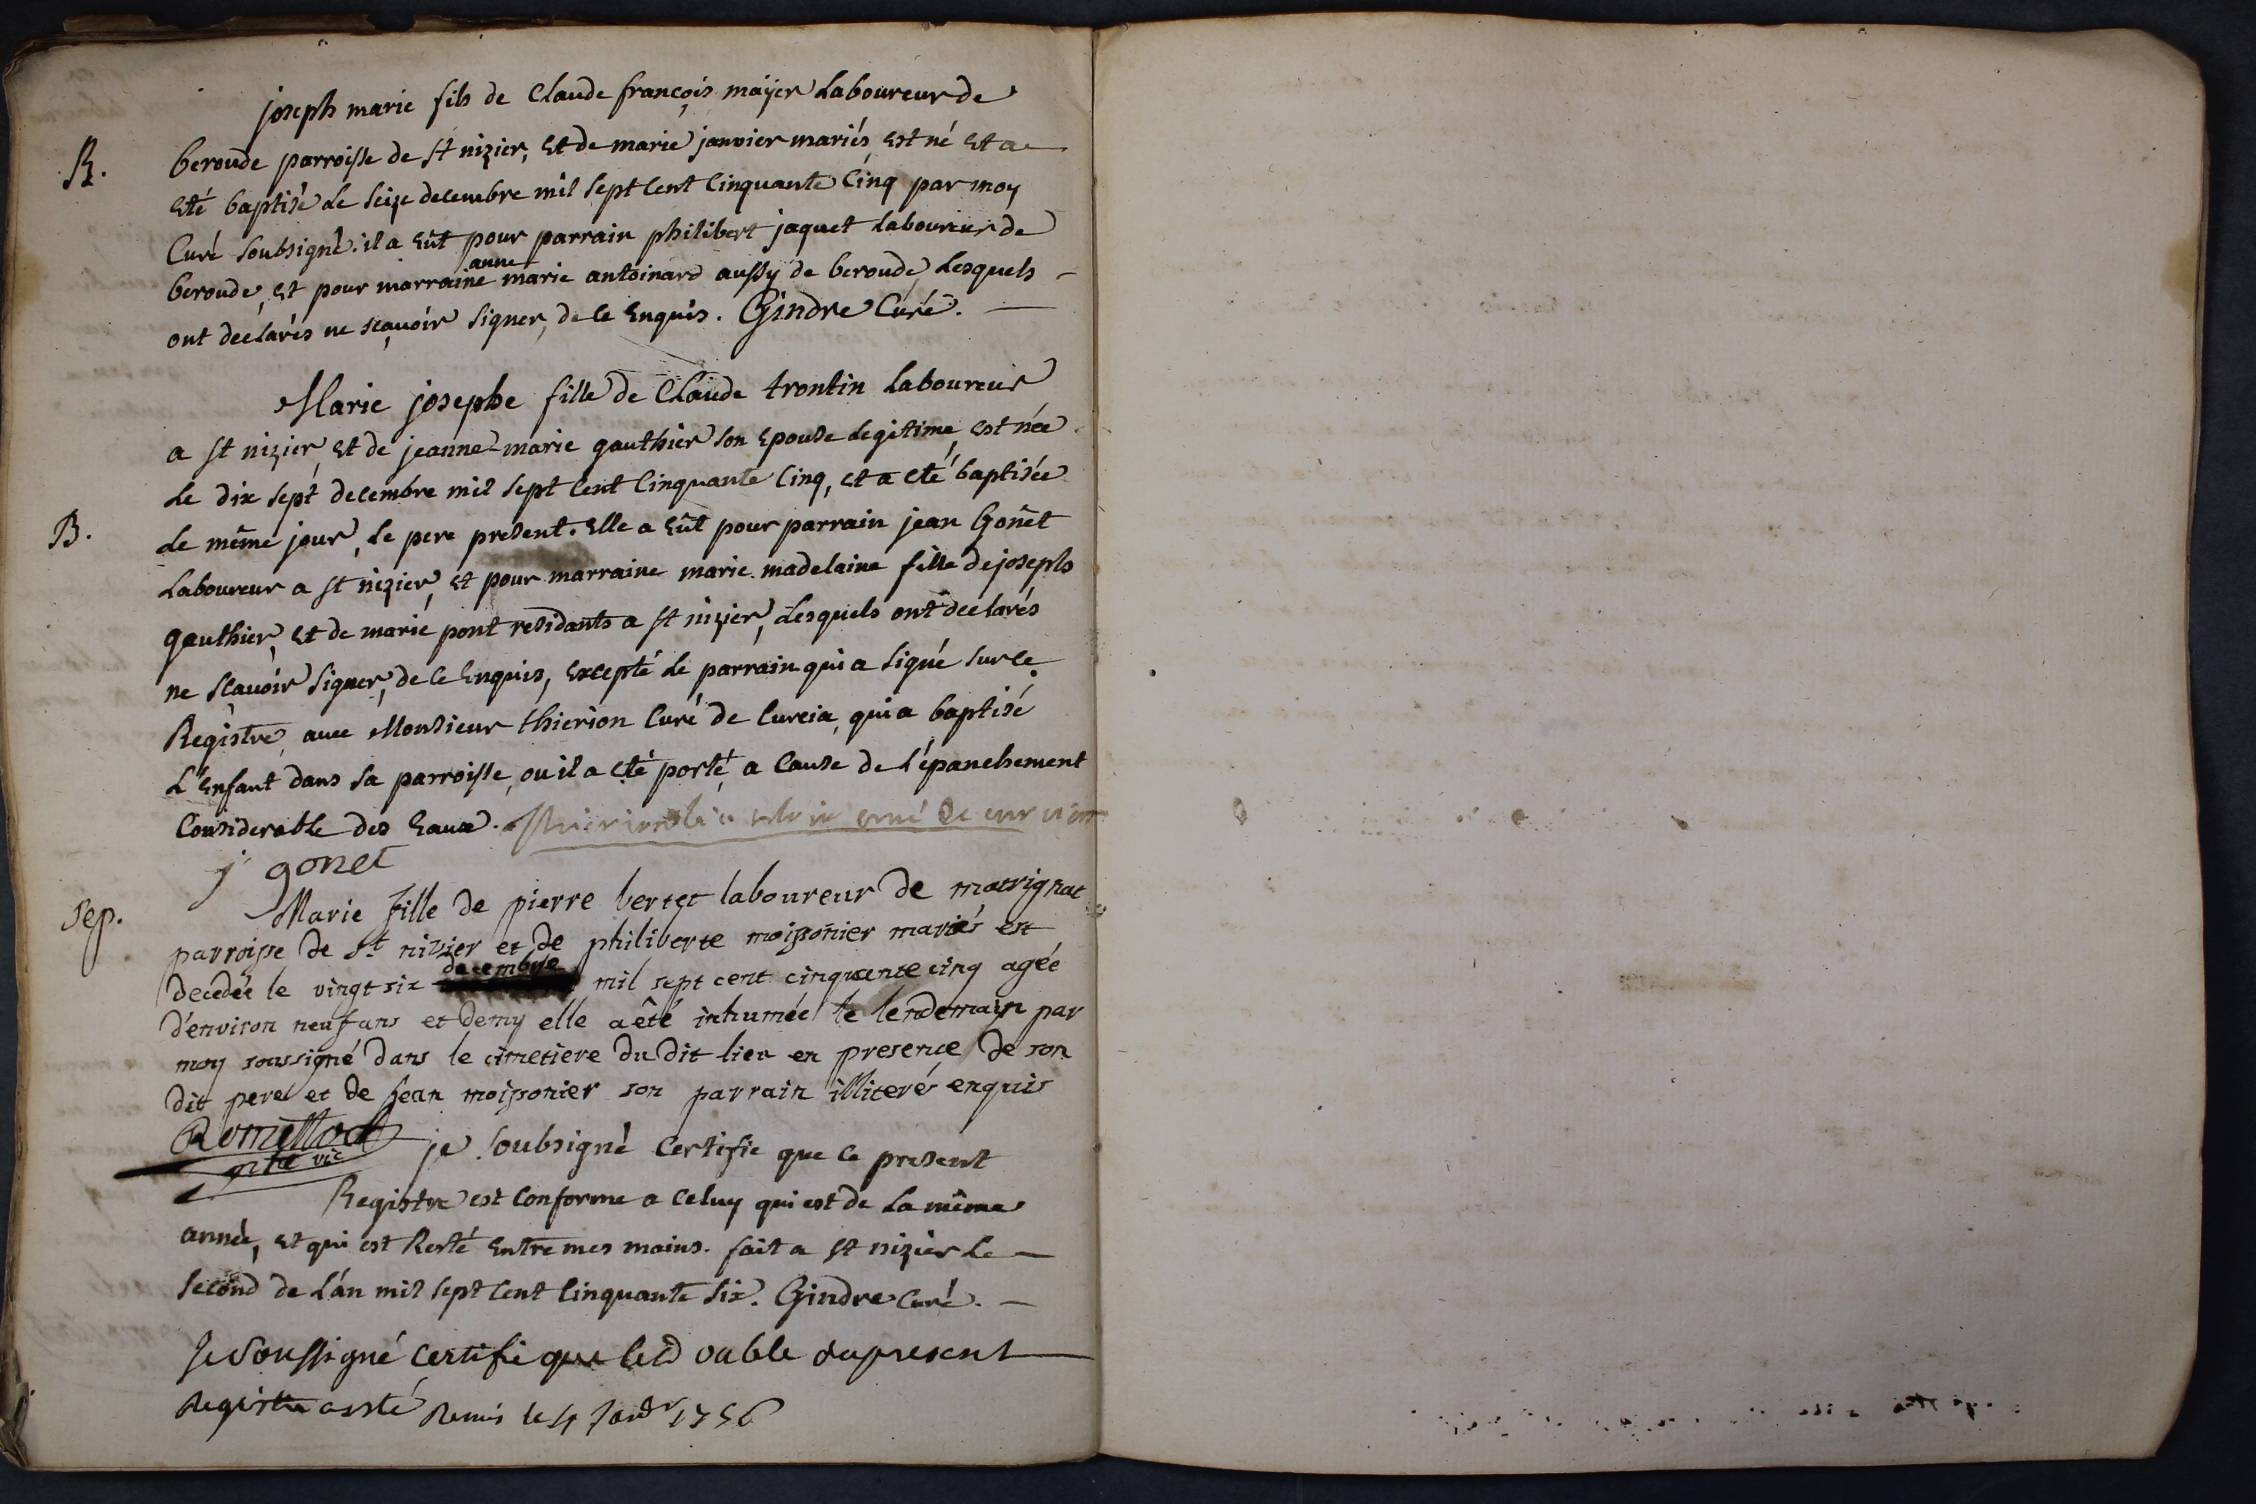 joseph marie fils de Claude françois maÿer Laboureur de
B.
beroude parroisse de st nizier, Et de marie janvier mariés, Est né Et a
Eté baptisé Le seize decembre mil sept cent cinquante cinq par moy
Curé soubsigné. il a Eût pour parrain philibert jaquet Laboureur de
beroude, Et pour marraine anne marie antoinard aussy de beroude, Lesquels
ont declarés ne sçauoir signer, de ce Enquis. Gindre Curé.
Marie josephe fille de Claude trontin Laboureur
a st nizier, Et de jeanne-marie gauthier son Epouse Legitime, est née
Le dix sept decembre mil sept cent cinquante cinq, et a eté baptisée
B.
Le même jour, Le pere present. Elle a Eût pour parrain jean Gonet
Laboureur a st nizier, Et pour marraine marie madelaine fille de joseph
gauthier, Et de marie pont residants a st nizier, Lesquels ont declarés
ne sçauoir signer, de ce Enquis, Excepté Le parrain qui a signé sur ce
Registre, auec Monsieur thierion Curé de Cureia, qui a baptisé
L'Enfant dans sa parroisse, ou il a eté porté, a Cause de L'épanchement
Considerable des Eaux.
j gonet
sep.
Marie fille de pierre bertet laboureur de matrignat
parroisse de st nizier et de philiberte moissonier mariés est
decedée le vingt six decembre mil sept cent cinquante cinq agée
d'environ neuf ans et demy elle a êté inhumée le lendemain par
moy soussigné dans le cimetiere du dit lieu en presence de son
dit pere et de jean moissonier son parrain illiterés enquis
ptre vic
je soubsigné Certifie que Ce present
Registre est Conforme a Celuy qui est de La même
année, Et qui est Resté Entre mes mains. fait a st nizier Le
second de L'an mil sept cent cinquante six. Gindre Curé.
Je soussigné certifie que le double du present
Registre a esté Remis le 4 Janvr 1756